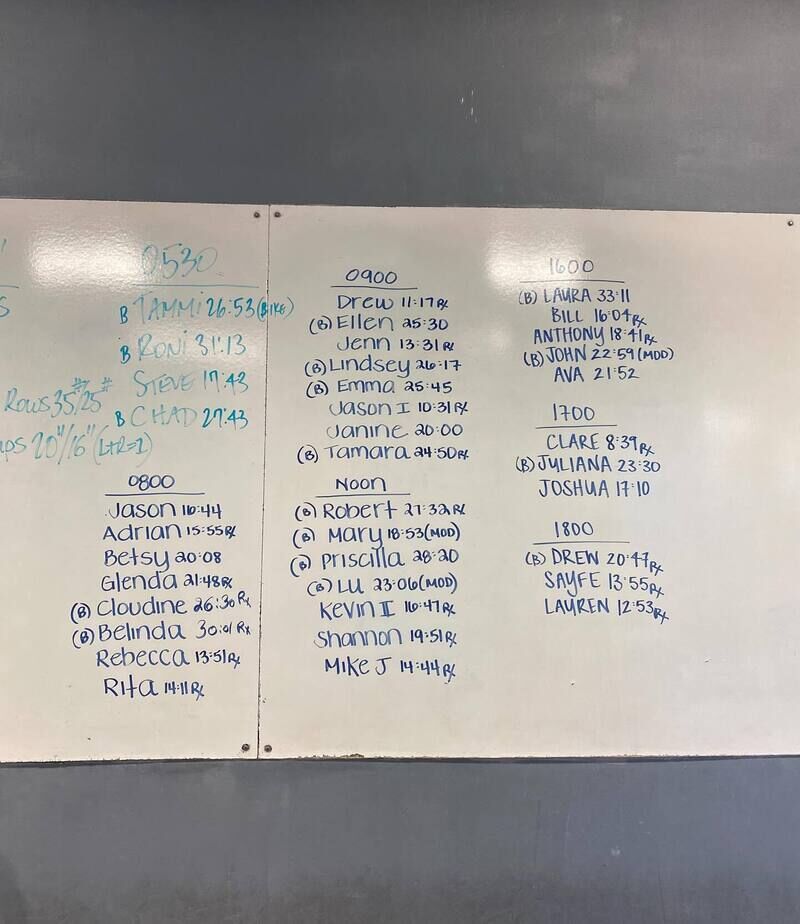 0530
B TAMMI 26:53 (BIKE)
B RONI 31:13
STEVE 17:43
B CHAD 27:43
ROWS 35#/25#
20"/16" (L+R=1)
0800
Jason 16:44
Adrian 15:55 Rx
Betsy 20:08
Glenda 21:48 Rx
(B) Cloudine 26:30 Rx
(B) Belinda 30:01 Rx
Rebecca 13:51 Rx
Rita 14:11 Rx
0900
Drew 11:17 Rx
(B) Ellen 25:30
Jenn 13:31 Rx
(B) Lindsey 26:17
(B) Emma 25:45
Jason I 10:31 Rx
Janine 20:00
(B) Tamara 24:50 Rx
NOON
(B) Robert 27:32 Rx
(B) Mary 18:53 (MOD)
(B) Priscilla 28:20
(B) LU 23:06 (MOD)
Kevin I 16:47 Rx
Shannon 19:51 Rx
Mike J 14:44 Rx
1600
(B) LAURA 33:11
BILL 16:04 Rx
ANTHONY 18:41 Rx
(B) JOHN 22:59 (MOD)
AVA 21:52
1700
CLARE 8:39 Rx
(B) JULIANA 23:30
JOSHUA 17:10
1800
(B) DREW 20:47 Rx
SAYFE 13:55 Rx
LAUREN 12:53 Rx